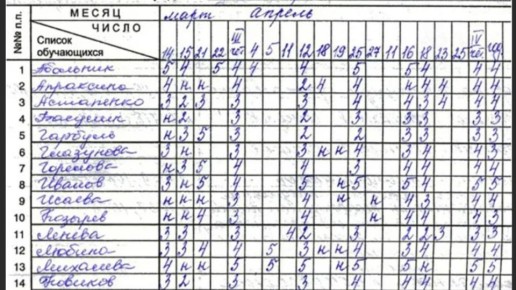 №№ п.п. МЕСЯЦ март апрель
ЧИСЛО
Список обучающихся 14 15 21 22 III чет 4 5 11 12 18 19 25 27 11 16 18 23 25 IV чет год
1 5 4 5 4 4 4 5 5 4 4 4
2 4 н н 4 2 4 4 н 4 4 4 4
3 Астаренко 3 2 3 3 3 4 4 3 4 4 4
4 н 2 3 2 2 3 3 3 3
5 Гарбуль н 3 5 3 2 2 3 3 3 3
6 Глазунова 3 н 3 3 н н 4 3 4 4 3
7 Горелова н 3 5 4 4 3 4 4 4 4
8 Иванов 3 н 5 4 5 н 5 5 4 5 5
9 Исаева н н н 3 4 н н 4 3 4 4
10 Козырев н н 4 3 4 н 4 4 4 3
11 3 3 3 4 2 3 2 2 3 3 3
12 Любина 3 3 4 4 5 3 н н 4 3 4 4 4
13 Михалева 4 н н 5 5 5 н 5 4 4 5 5
14 Новиков 3 2 3 3 4 4 4 4 4